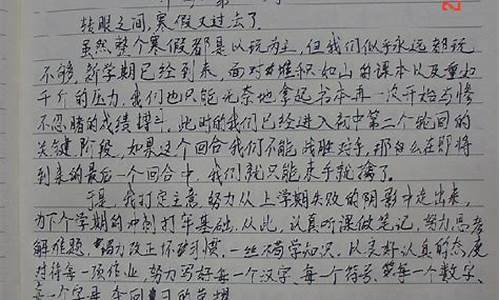 转眼之间,寒假又过去了。
虽然整个寒假都是以玩为主,但我们似乎永远都玩
不够,新学期已经到来,面对堆积如山的课本以及重如
千斤的压力,我们也只能无奈地拿起书本再一次开始与惨
不忍睹的成绩搏斗,此时的我们已经进入初中第二个轮回的
关键阶段,如果这个回合我们不能战胜对手,那么在即将
到来的最后一个回合中,我们就只能束手就擒了。
于是,我打定主意,努力从上学期失败的阴影中走出来,
为下个学期的冲刺打牢基础,从此,认真听课做笔记,努力思考
解难题,努力改正坏习惯,一丝不苟学知识。以良好认真的态度
对待每一项作业,努力写好每一个汉字、每一个符号、每一个数字、
每一个字母,夺回的荣耀